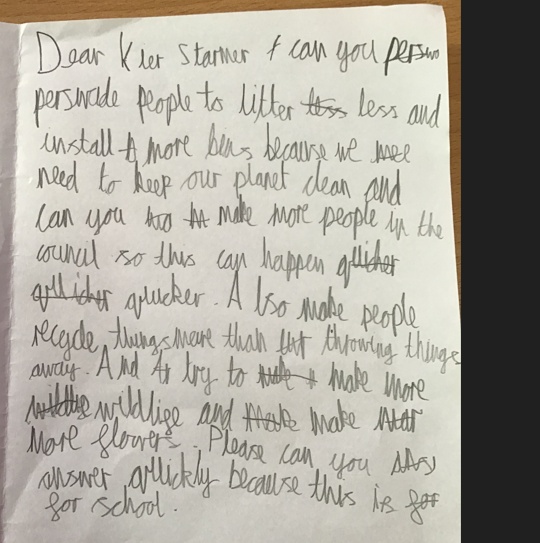 Dear Kier Starmer can you perswo
perswade people to litter less less and
install more bins because we nee
need to keep our planet clean and
can you make more people in the
council so this can happen qlicher
qlicher qucker. Also make people
recycle things more than throwing things
away. And try to make make more
wildlige and make make
More flowers. Please can you
answer qllickly because this is for
for school.